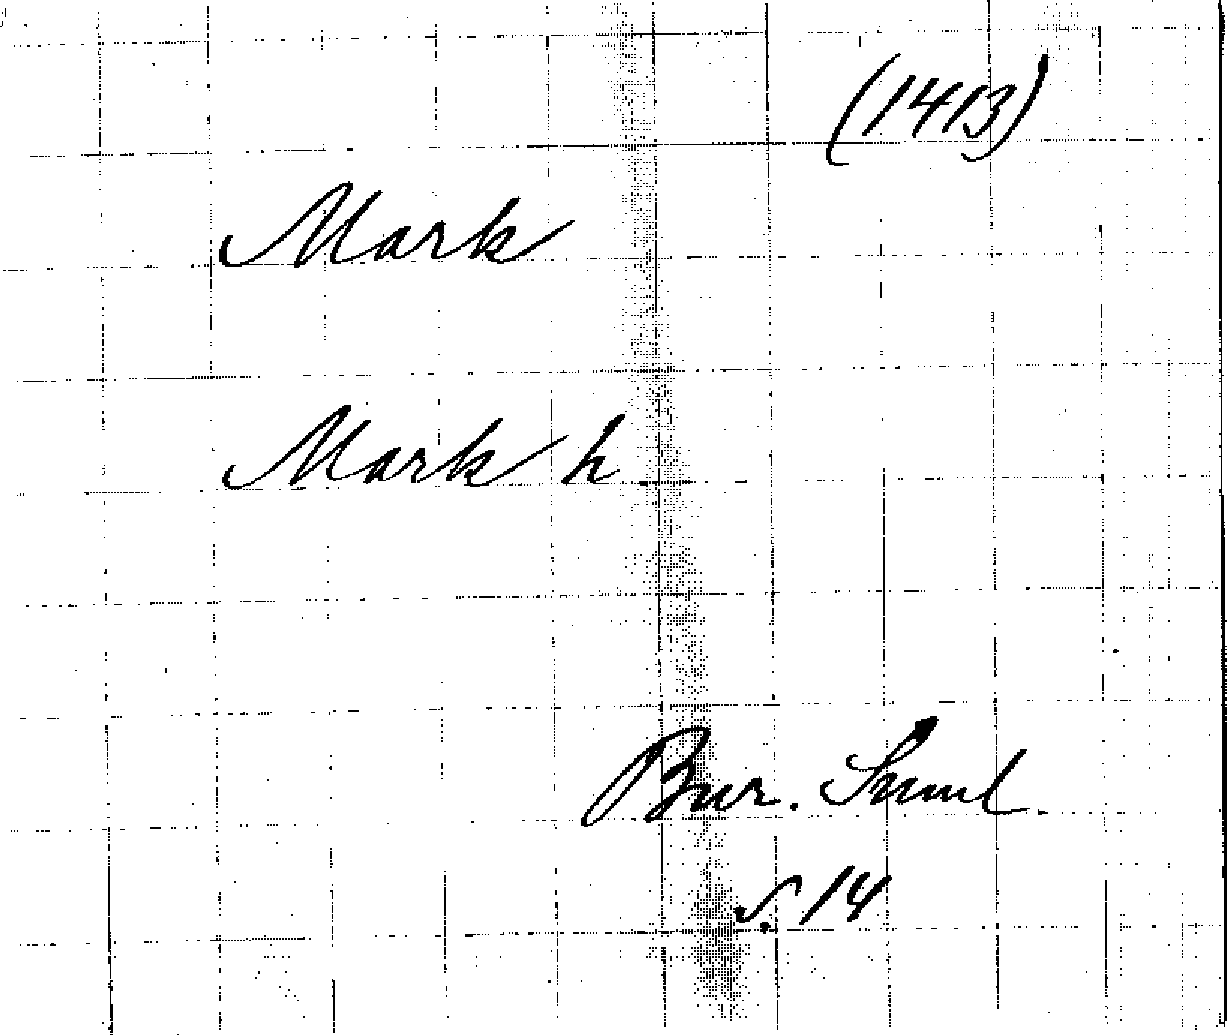 (1413)
Mark
Mark h
Bur. Sund.
s. 14